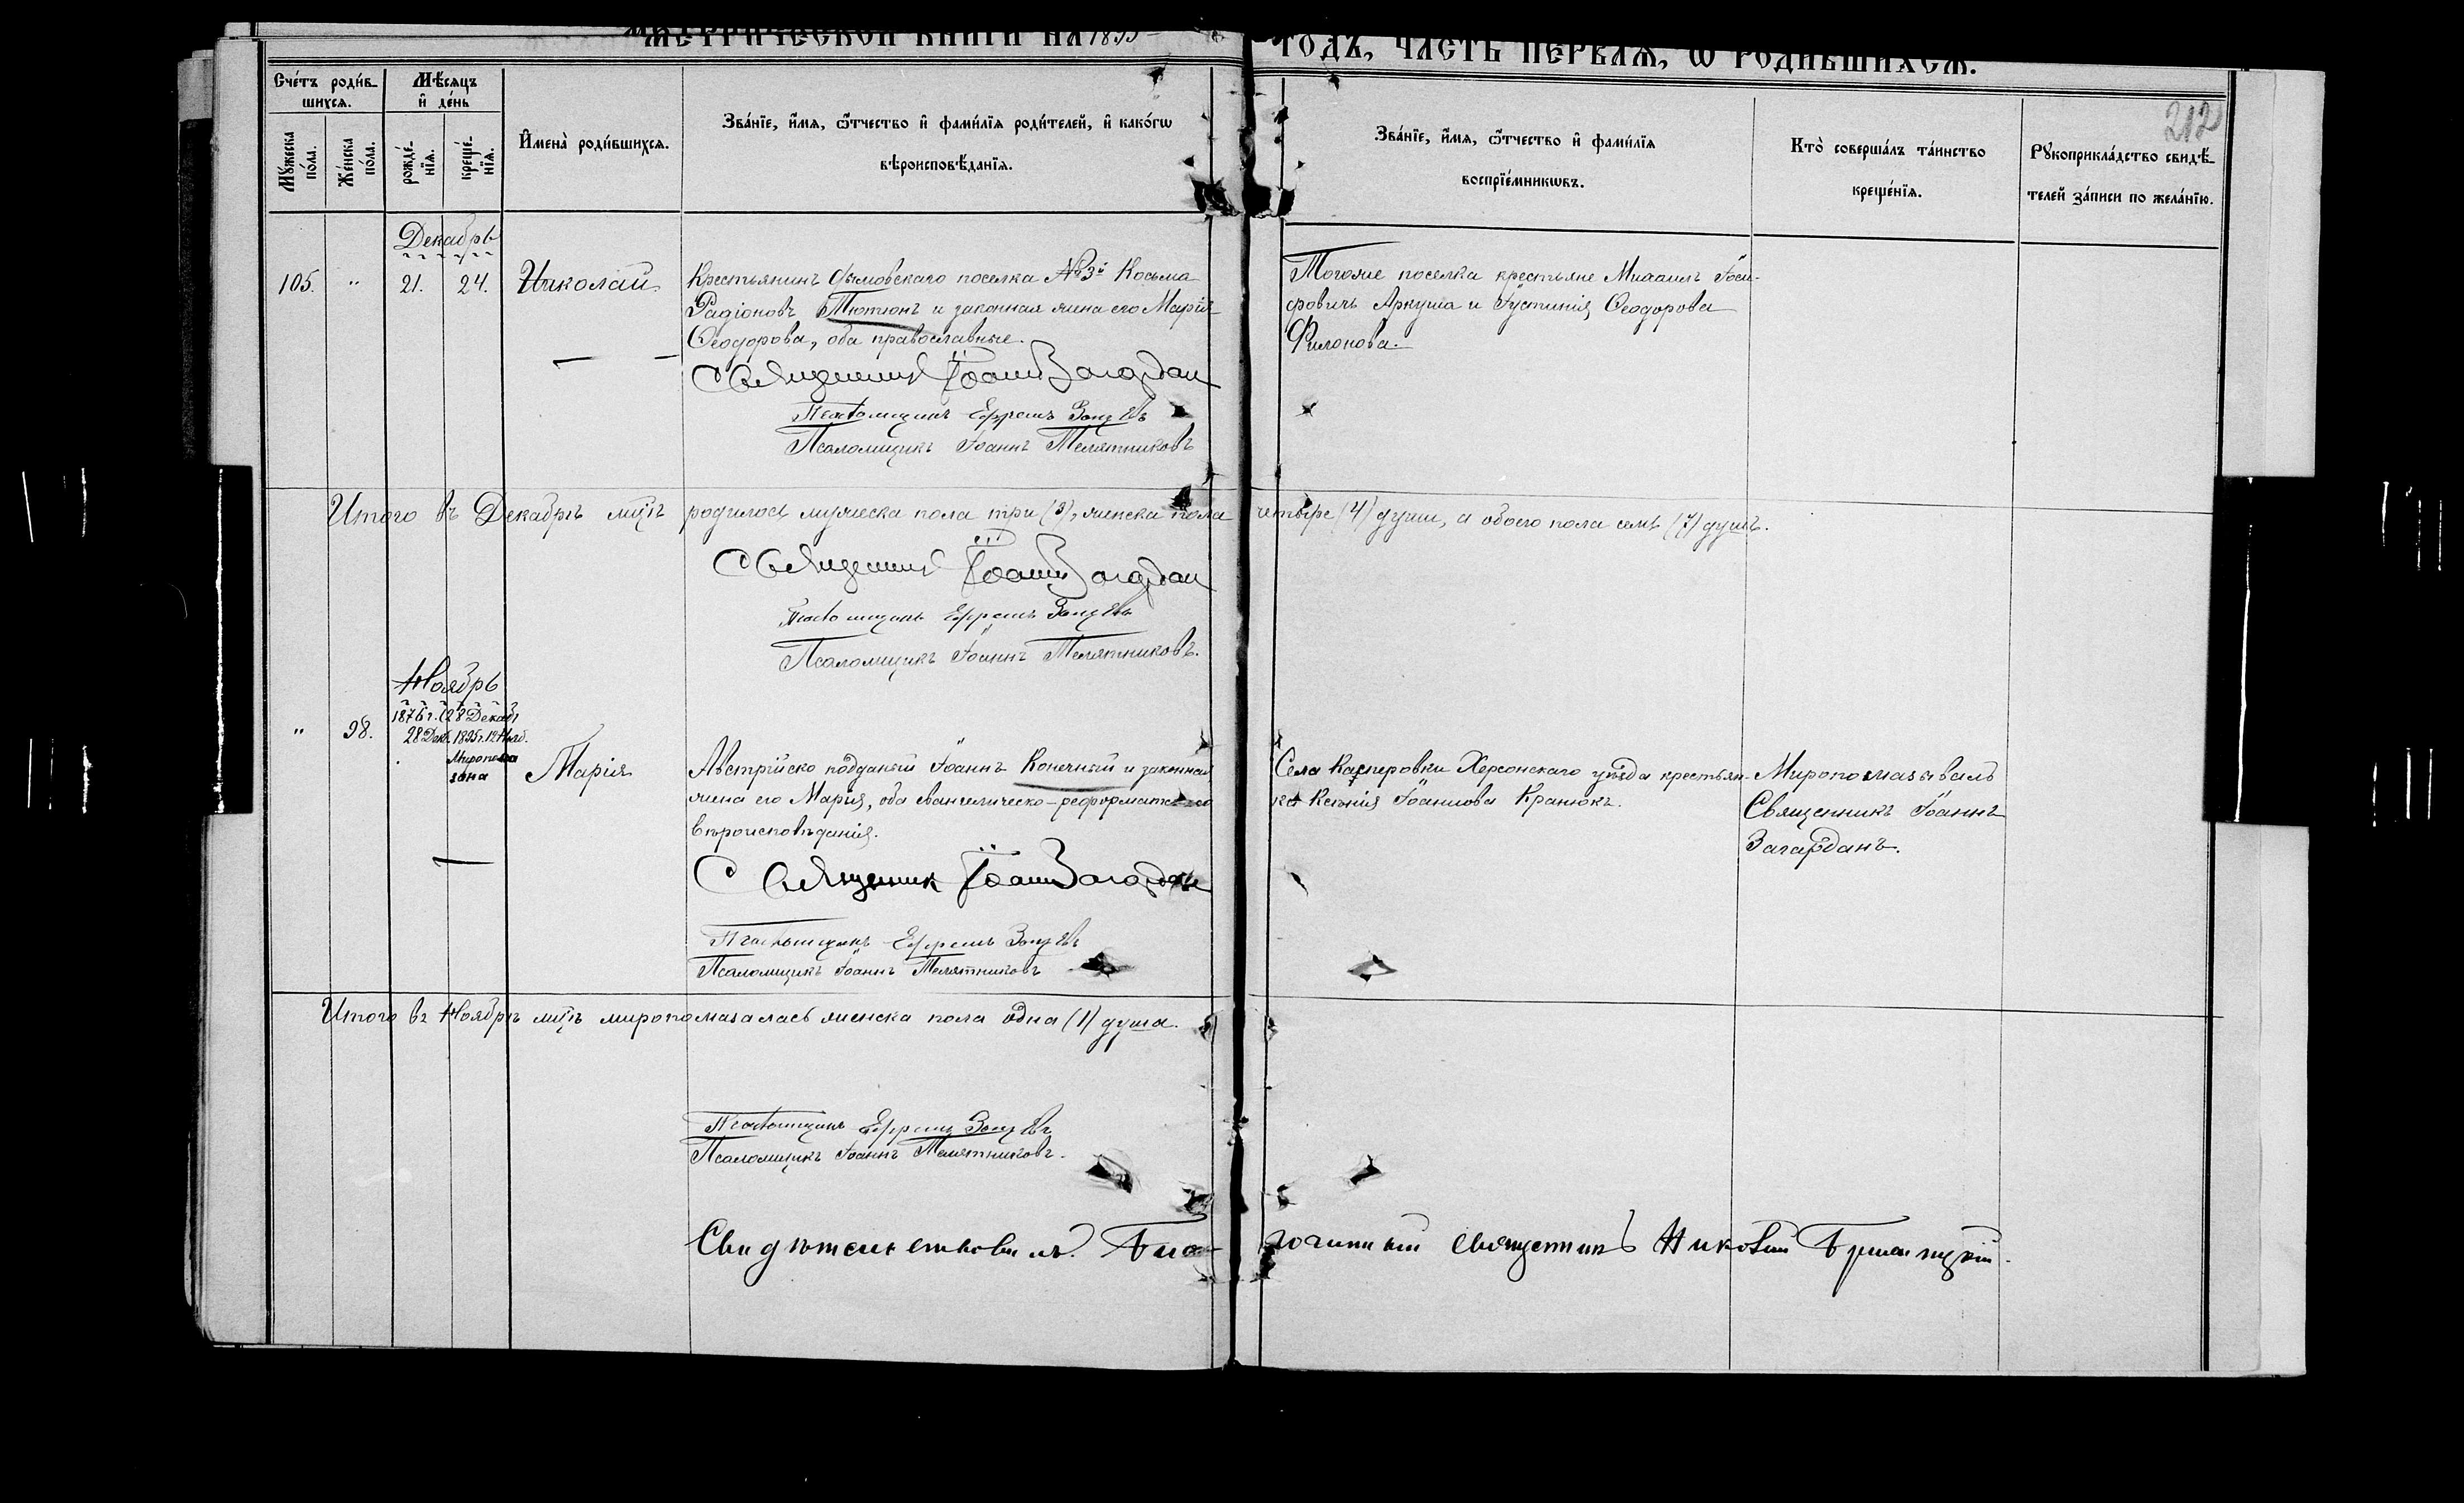 МЕТРИЧЕСКОЙ КНИГИ НА 1895
ГОДЪ, ЧАСТЬ ПЕРВАЯ, Ѡ РОДИВШИХСЯ.
212
Сче́тъ роди́в-
шихся.
Мѣ́сяцъ
и҆ де́нь
Мꙋ́жеска
по́ла.
Же́нска
по́ла.
рожде́-
нїя.
креще́-
нїя.
И҆мена̀ роди́вшихся.
Зва́нїе, и҆́мя, ѻ҆́тчество и҆ фами́лїя роди́телей, и҆ како́гѡ
вѣроисповѣ́данїя.
Зва́нїе, и҆́мя, ѻ҆́тчество и҆ фами́лїя
воспрїе́мникѡвъ.
Кто̀ соверша́лъ та́инство
креще́нїя.
Рꙋкоприкла́дство свидѣ́-
телей за́писи по жела́нїю.
Декабрь
105. " 21. 24. Николай
Крестьянинъ поселка №3й Косьма
Радіоновъ Тютюнъ и законная жена его Марія
Ѳеодорова, оба православные.
Священникъ Іоаннъ Загорданъ
Псаломщикъ Ефремъ
Псаломщикъ Іоаннъ Телятниковъ
Тогоже поселка крестьяне Михаилъ Іоси-
фовичъ Аркуша и Іустинія Ѳеодорова
Филонова.
Итого въ Декабрѣ мцѣ родилось мужеска пола три (3), женска пола четыре (4) души, а обоего пола семь (7) душъ.
Священникъ Іоаннъ Загорданъ
Псаломщикъ Ефремъ
Псаломщикъ Іоаннъ Телятниковъ.
Ноябрь
1876 г. 28 Декаб.
" 98. 28 Дек. 1895 г. 12 Нояб.
Миропома
зана
Марія
Австрійско подданый Іоаннъ Конечный и законная
жена его Марія, оба евангелическо-реформатскаго
вѣроисповѣданія.
Священник Іоаннъ Загорданъ
Псаломщикъ Ефремъ
Псаломщикъ Іоаннъ Телятниковъ
Села Касперовки Херсонскаго уѣзда крестьян-
ка Ксенія Іоаннова Кранюкъ.
Миропомазывалъ
Священникъ Іоаннъ
Загарданъ.
Итого въ Ноябрѣ мцѣ миропомазалась женска пола одна (1) душа.
Псаломщикъ Ефремъ
Псаломщикъ Іоаннъ Телятниковъ.
Свидѣтельствовалъ. Благочинный священникъ Николай